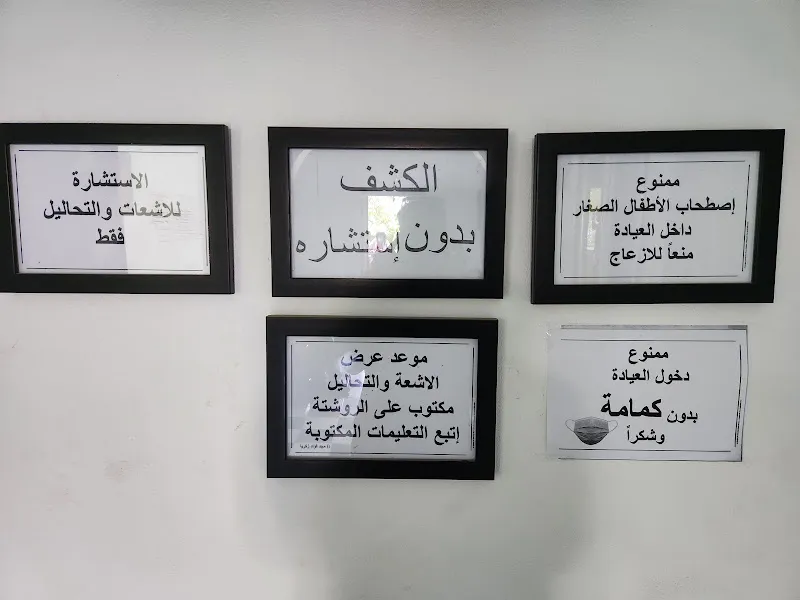 ممنوع
إصطحاب الأطفال الصغار
داخل العيادة
منعاً للازعاج
الكشف
بدون إستشاره
الاستشارة
للاشعات والتحاليل
فقط
ممنوع
دخول العيادة
بدون كمامة
وشكراً
موعد عرض
الاشعة والتحاليل
مكتوب على الروشتة
إتبع التعليمات المكتوبة